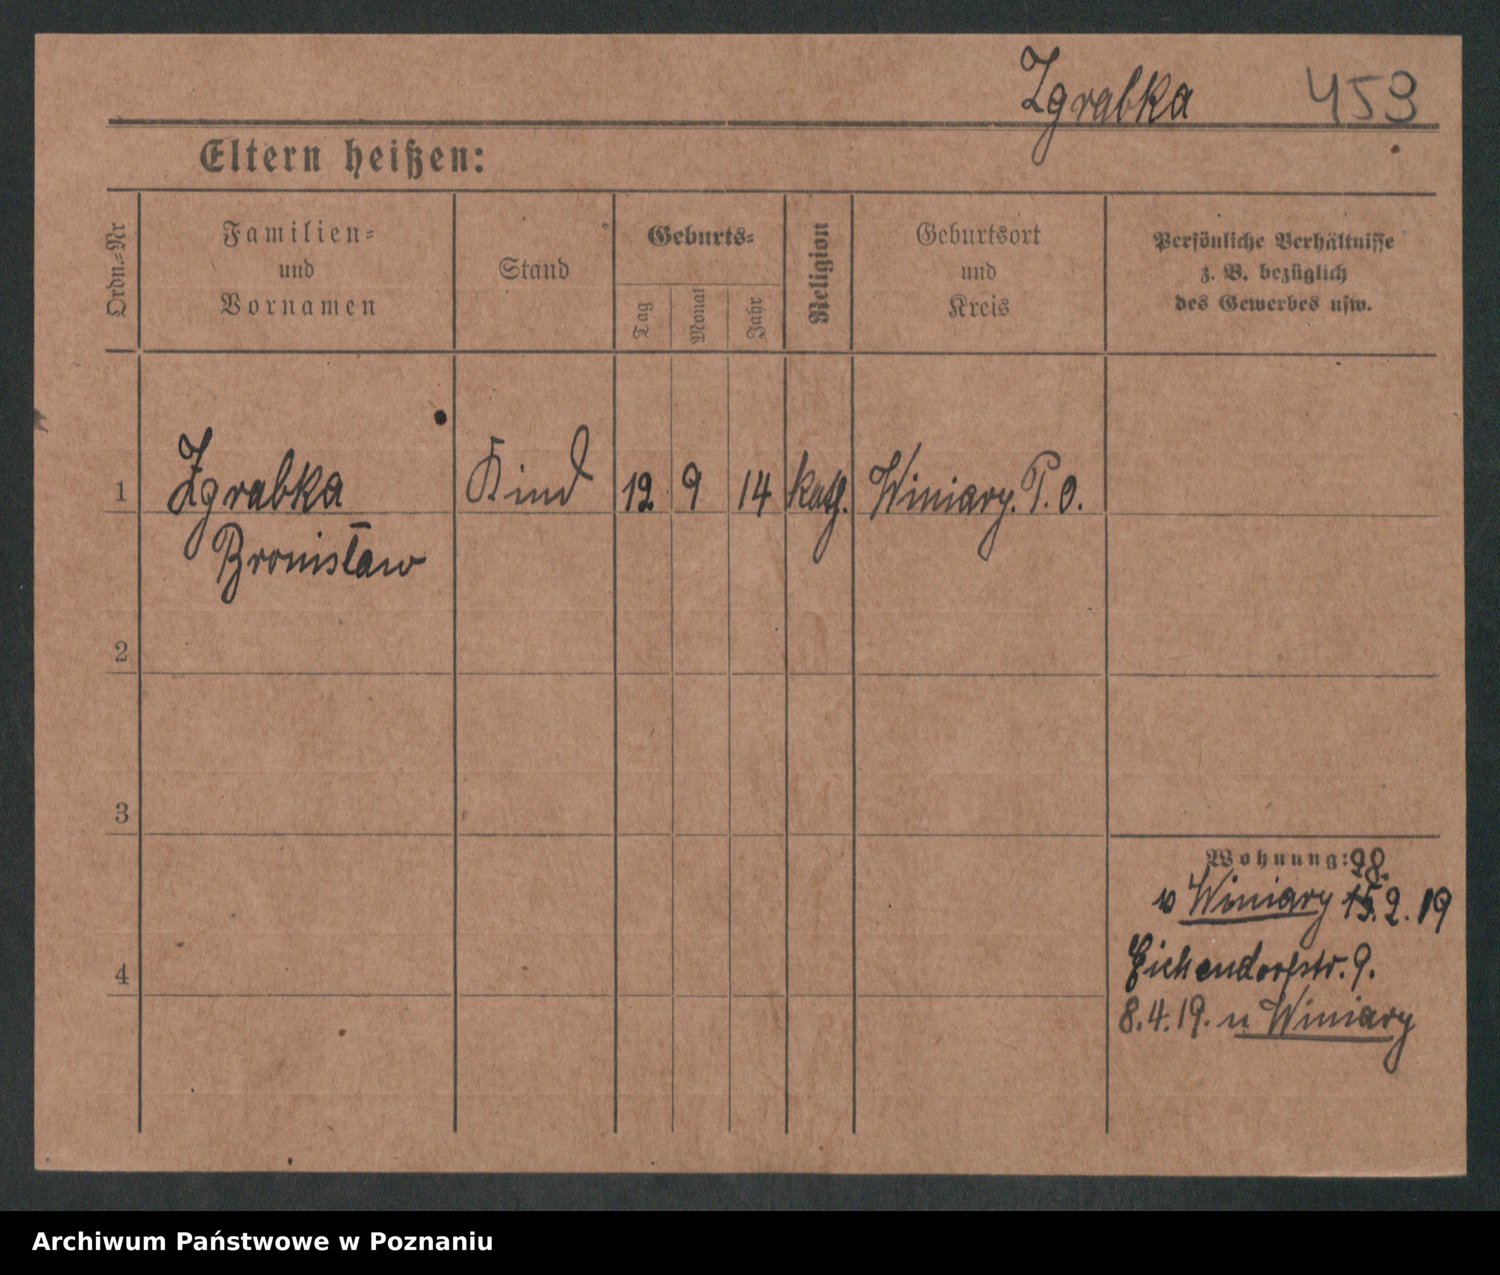 Zgrabka 459
Eltern heißen:
Ordn.-Nr
Familien-
und
Vornamen
Stand
Geburts-
Tag
Monat
Jahr
Religion
Geburtsort
und
Kreis
Persönliche Verhältnisse
z. B. bezüglich
des Gewerbes usw.
1 Zgrabka Kind 12 9 14 kath. Winiary. P. O.
Bronisław
2
3
4
Wohnung: 28.
v Winiary 2. 19
Eichendorfstr. 9.
8.4.19. n Winiary
Archiwum Państwowe w Poznaniu